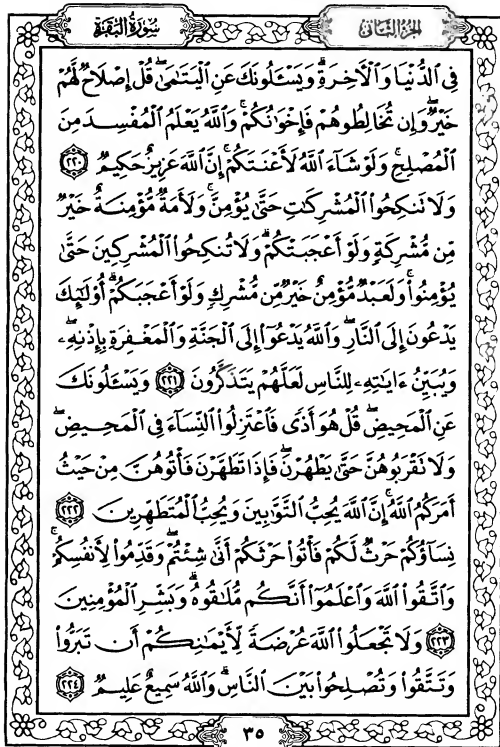 سُورَةُ البَقَرَةِ
الجزء الثاني
فِي ٱلدُّنْيَا وَٱلْآخِرَةِ ۗ وَيَسْـَٔلُونَكَ عَنِ ٱلْيَتَٰمَىٰ ۖ قُلْ إِصْلَاحٌ لَّهُمْ
خَيْرٌ ۖ وَإِن تُخَالِطُوهُمْ فَإِخْوَٰنُكُمْ ۚ وَٱللَّهُ يَعْلَمُ ٱلْمُفْسِدَ مِنَ
ٱلْمُصْلِحِ ۚ وَلَوْ شَآءَ ٱللَّهُ لَأَعْنَتَكُمْ ۚ إِنَّ ٱللَّهَ عَزِيزٌ حَكِيمٌ ٢٢٠
وَلَا تَنكِحُوا۟ ٱلْمُشْرِكَٰتِ حَتَّىٰ يُؤْمِنَّ ۚ وَلَأَمَةٌ مُّؤْمِنَةٌ خَيْرٌ
مِّن مُّشْرِكَةٍ وَلَوْ أَعْجَبَتْكُمْ ۗ وَلَا تُنكِحُوا۟ ٱلْمُشْرِكِينَ حَتَّىٰ
يُؤْمِنُوا۟ ۚ وَلَعَبْدٌ مُّؤْمِنٌ خَيْرٌ مِّن مُّشْرِكٍ وَلَوْ أَعْجَبَكُمْ ۗ أُو۟لَٰٓئِكَ
يَدْعُونَ إِلَى ٱلنَّارِ ۖ وَٱللَّهُ يَدْعُوٓا۟ إِلَى ٱلْجَنَّةِ وَٱلْمَغْفِرَةِ بِإِذْنِهِۦ ۖ
وَيُبَيِّنُ ءَايَٰتِهِۦ لِلنَّاسِ لَعَلَّهُمْ يَتَذَكَّرُونَ ٢٢١ وَيَسْـَٔلُونَكَ
عَنِ ٱلْمَحِيضِ ۖ قُلْ هُوَ أَذًى فَٱعْتَزِلُوا۟ ٱلنِّسَآءَ فِي ٱلْمَحِيضِ ۖ
وَلَا تَقْرَبُوهُنَّ حَتَّىٰ يَطْهُرْنَ ۖ فَإِذَا تَطَهَّرْنَ فَأْتُوهُنَّ مِنْ حَيْثُ
أَمَرَكُمُ ٱللَّهُ ۚ إِنَّ ٱللَّهَ يُحِبُّ ٱلتَّوَّٰبِينَ وَيُحِبُّ ٱلْمُتَطَهِّرِينَ ٢٢٢
نِسَآؤُكُمْ حَرْثٌ لَّكُمْ فَأْتُوا۟ حَرْثَكُمْ أَنَّىٰ شِئْتُمْ ۖ وَقَدِّمُوا۟ لِأَنفُسِكُمْ ۚ
وَٱتَّقُوا۟ ٱللَّهَ وَٱعْلَمُوٓا۟ أَنَّكُم مُّلَٰقُوهُ ۗ وَبَشِّرِ ٱلْمُؤْمِنِينَ
٢٢٣ وَلَا تَجْعَلُوا۟ ٱللَّهَ عُرْضَةً لِّأَيْمَٰنِكُمْ أَن تَبَرُّوا۟
وَتَتَّقُوا۟ وَتُصْلِحُوا۟ بَيْنَ ٱلنَّاسِ ۗ وَٱللَّهُ سَمِيعٌ عَلِيمٌ ٢٢٤
٣٥